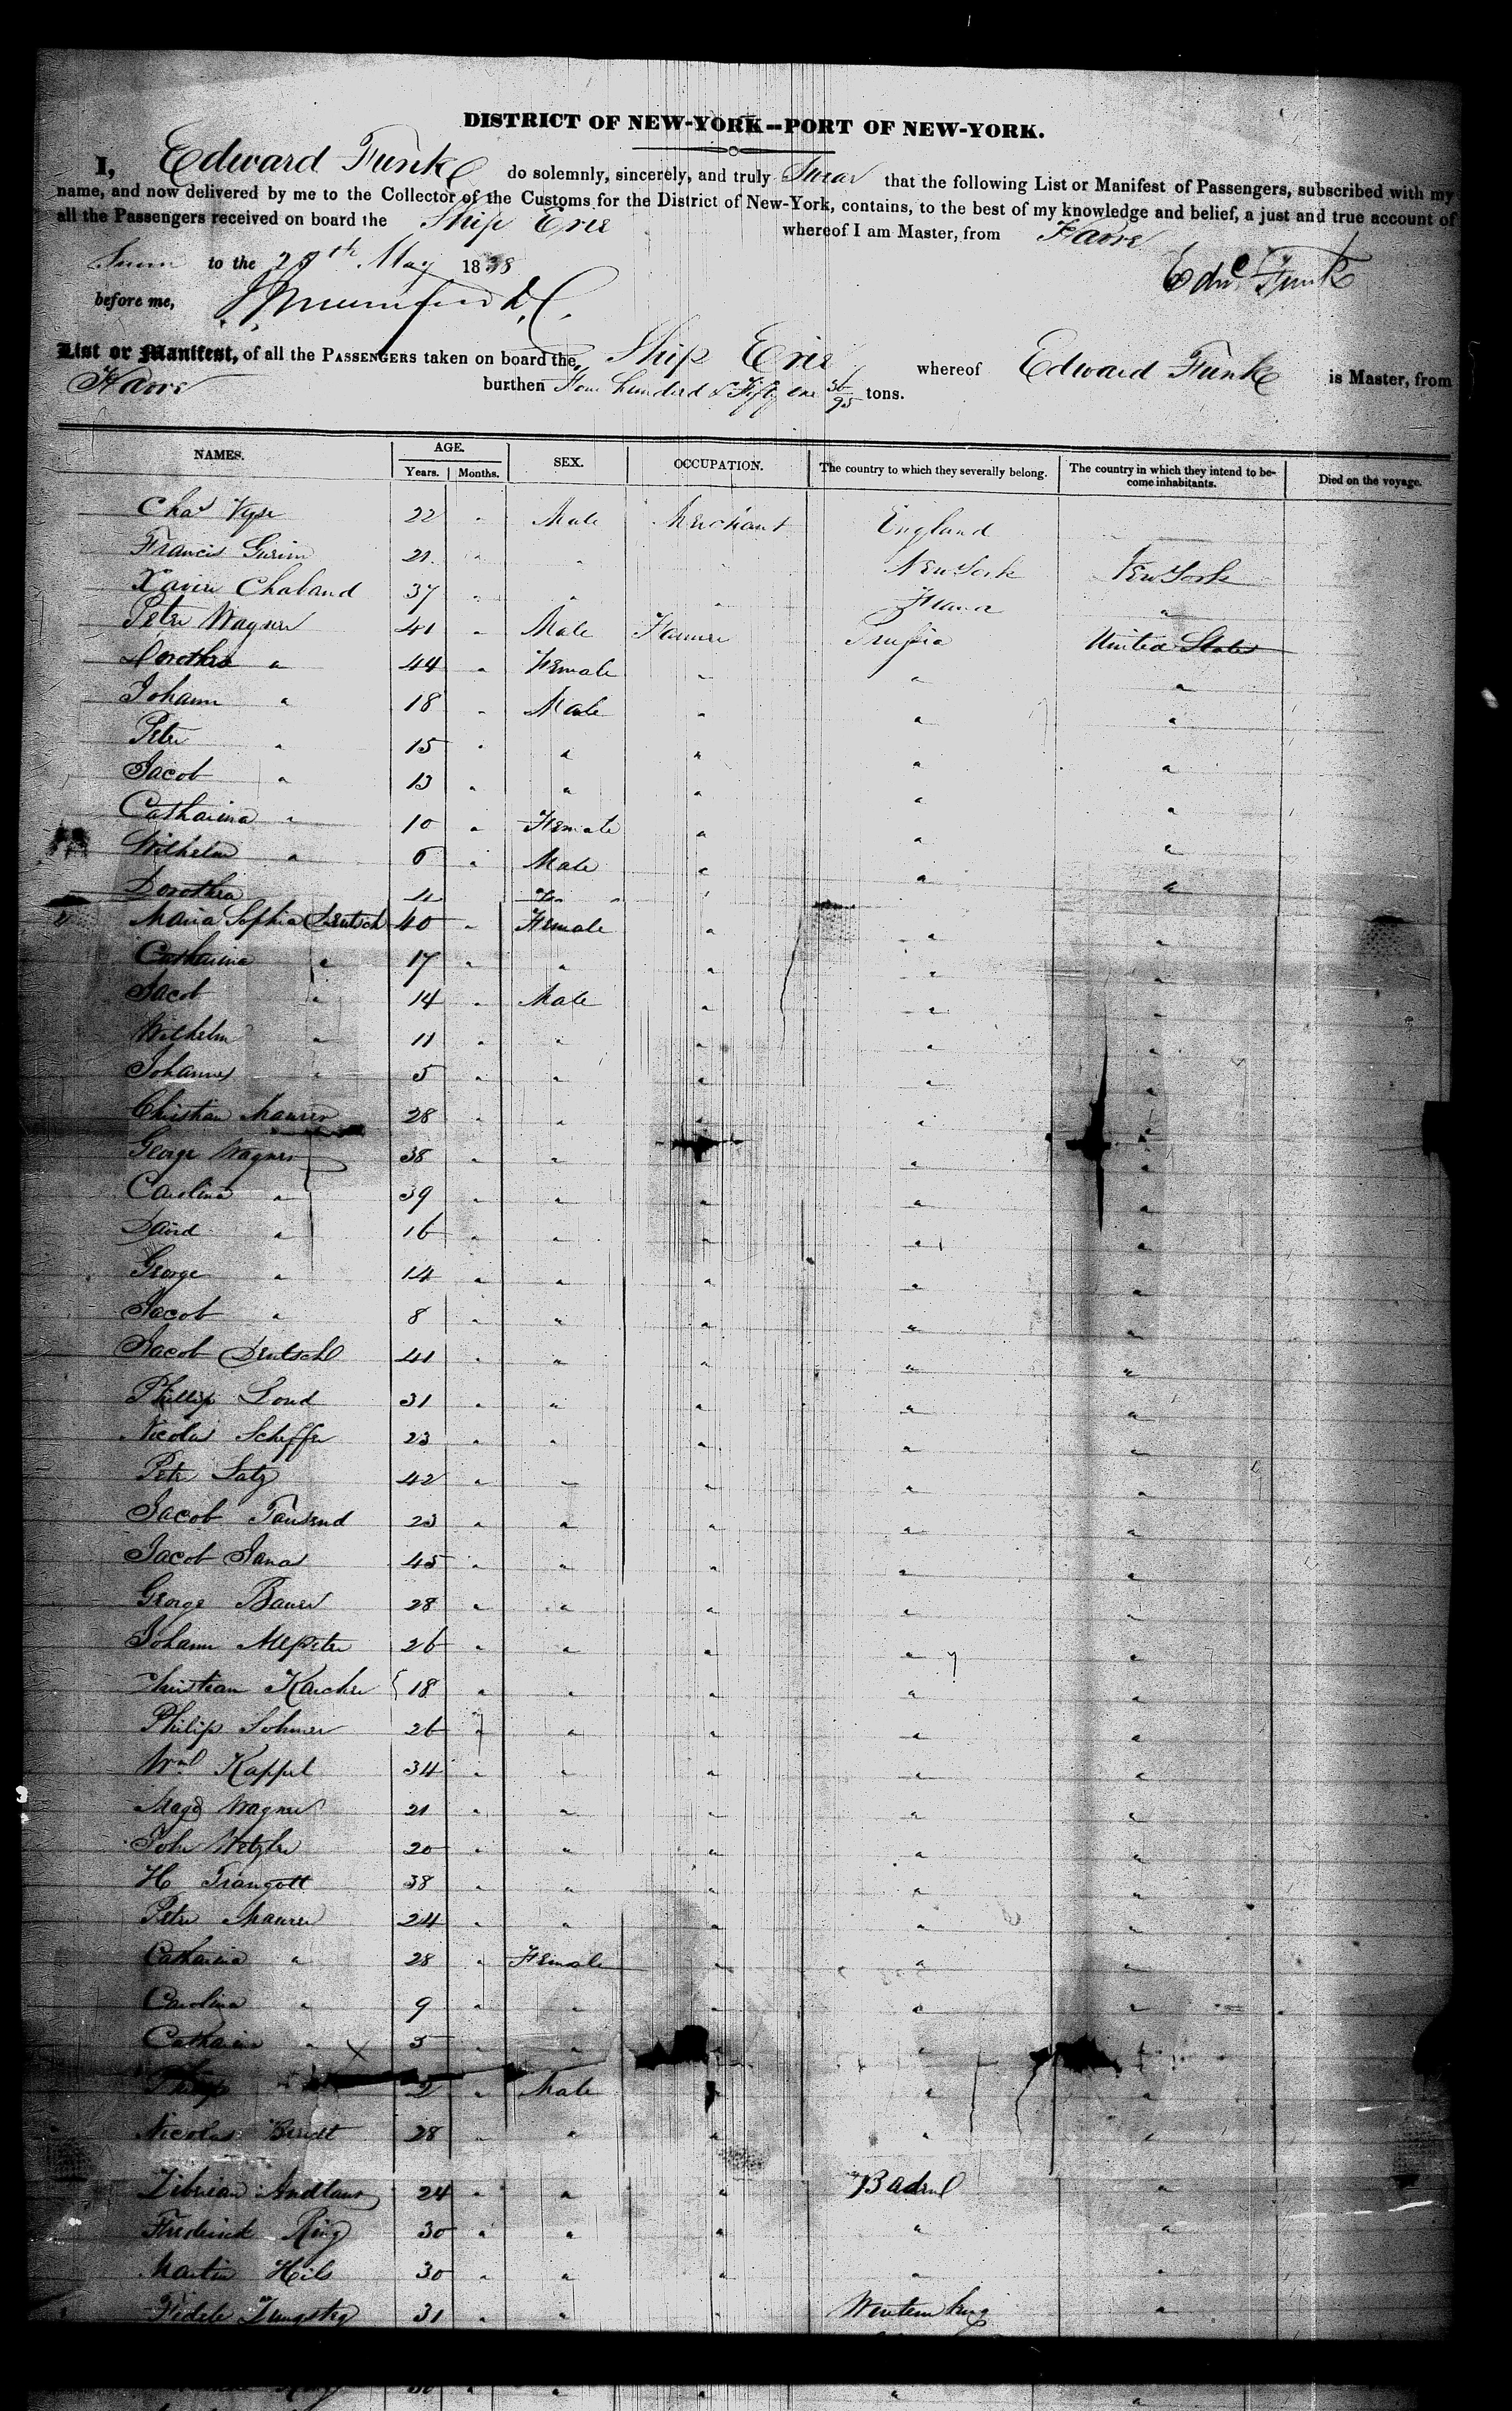 DISTRICT OF NEW-YORK--PORT OF NEW-YORK.
I, Edward Funk do solemnly, sincerely, and truly Swear that the following List or Manifest of Passengers, subscribed with my
name, and now delivered by me to the Collector of the Customs for the District of New-York, contains, to the best of my knowledge and belief, a just and true account of
all the Passengers received on board the Ship Erie whereof I am Master, from Havre
Sworn to the 25th May 1838 Edwd Funk
before me,
List or Manifest, of all the PASSENGERS taken on board the, Ship Erie whereof Edward Funk is Master, from
Havre burthen Four hundred & Fifty one 31/95 tons.
NAMES. AGE. Years. Months. SEX. OCCUPATION. The country to which they severally belong. The country in which they intend to become inhabitants. Died on the voyage.
Chas Vyse 22 " Male Merchant England
Francis 21 " " New York New York
Xavier Chaband 37 " " " France "
Peter Wagner 41 " Male Farmer Prussia United States
Dorothea " 44 " Female " " "
Johann " 18 " Male " " "
Peter " 15 " " " " "
Jacob " 13 " " " " "
Catharina " 10 " Female " " "
Wilhelm " 6 " Male " " "
Dorothea
Maria Sophia Deutsch 40 " Female " " "
Catharina " 17 " " " " "
Jacob " 14 " Male " " "
Wilhelm " 11 " " " " "
Johannes " 5 " " " " "
Christian Maurer 28 " " " " "
George Wagner 38 " " " " "
Carolina " 39 " " " " "
David " 16 " " " " "
George " 14 " " " " "
Jacob " 8 " " " " "
Jacob Deutsch 41 " " " " "
Phillip Loud 31 " " " " "
Nicolas Scheffer 23 " " " " "
Peter Satz 42 " " " " "
Jacob Tausend 23 " " " " "
Jacob 45 " " " " "
George Bauer 28 " " " " "
Johann 26 " " " " "
Christian Karcher 18 " " " " "
Philip Sohmer 26 " " " " "
Wm Kappel 34 " " " " "
Magd Wagner 21 " " " " "
John Wetzler 20 " " " " "
H Traugott 38 " " " " "
Peter Maurer 24 " " " " "
Catharina " 28 " Female " " "
Carolina " 9 " " " " "
Catharina " 5 " " " " "
2 " Male " " "
Nicolas 28 " " " " "
Andlauer 24 " " " Baden "
Frederick Ring 30 " " " " "
Martin Hils 30 " " " " "
Fidele 31 " " " Wurtemburg "